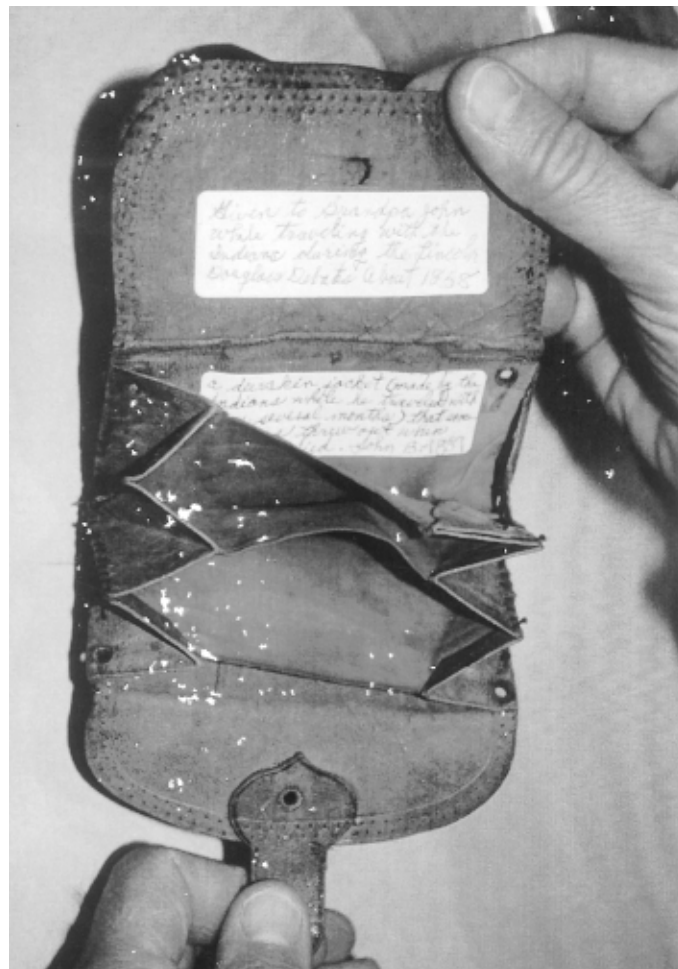 Given to Grandpa John
while traveling with the
Indians during the Lincoln
Douglass Debate about 1858
a deerskin socket (made by the
Indians where he traveled with
several months) that
threw out when
John